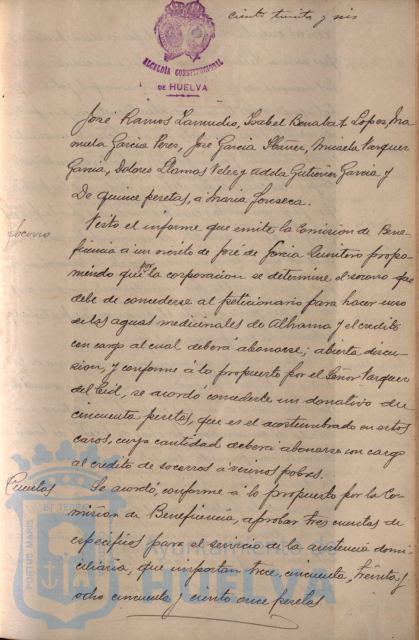 ciento treinta y seis
ALCALDIA CONSTITUCIONAL
DE HUELVA
José Ramos Zamudio, Isabel Benabat López, Ma-
nuela Garcia Perez, José Garcia Ibañez, Micaela Vazquez
Garcia, Dolores Llamas Velez y Adela Gutierrez Garcia y
De quince pesetas, á Maria Fonseca.
Socorro
Visto el informe que emite la Comision de Bene-
ficencia á un escrito de José de Garcia Quintero propo-
niendo que por la corporacion se determine el socorro que
debe de concederse al peticionario para hacer uso
de las aguas medicinales de Alhama y el credito
con cargo al cual deberá abonarse; abierta discu-
sion, y conforme á lo propuesto por el Señor Vazquez
del Cid, se acordó concederle un donativo de
cincuenta pesetas, que es el acostumbrado en estos
casos, cuya cantidad deberá abonarse con cargo
al credito de socorros á vecinos pobres.
Cuentas
Se acordó, conforme á lo propuesto por la Co-
mision de Beneficencia, aprobar tres cuentas de
especificos para el servicio de la asistencia domi-
ciliaria, que importan trece, cincuenta, treinta y
ocho cincuenta y ciento once pesetas
PORTUS MARIS
Ayuntamiento de
HUELVA